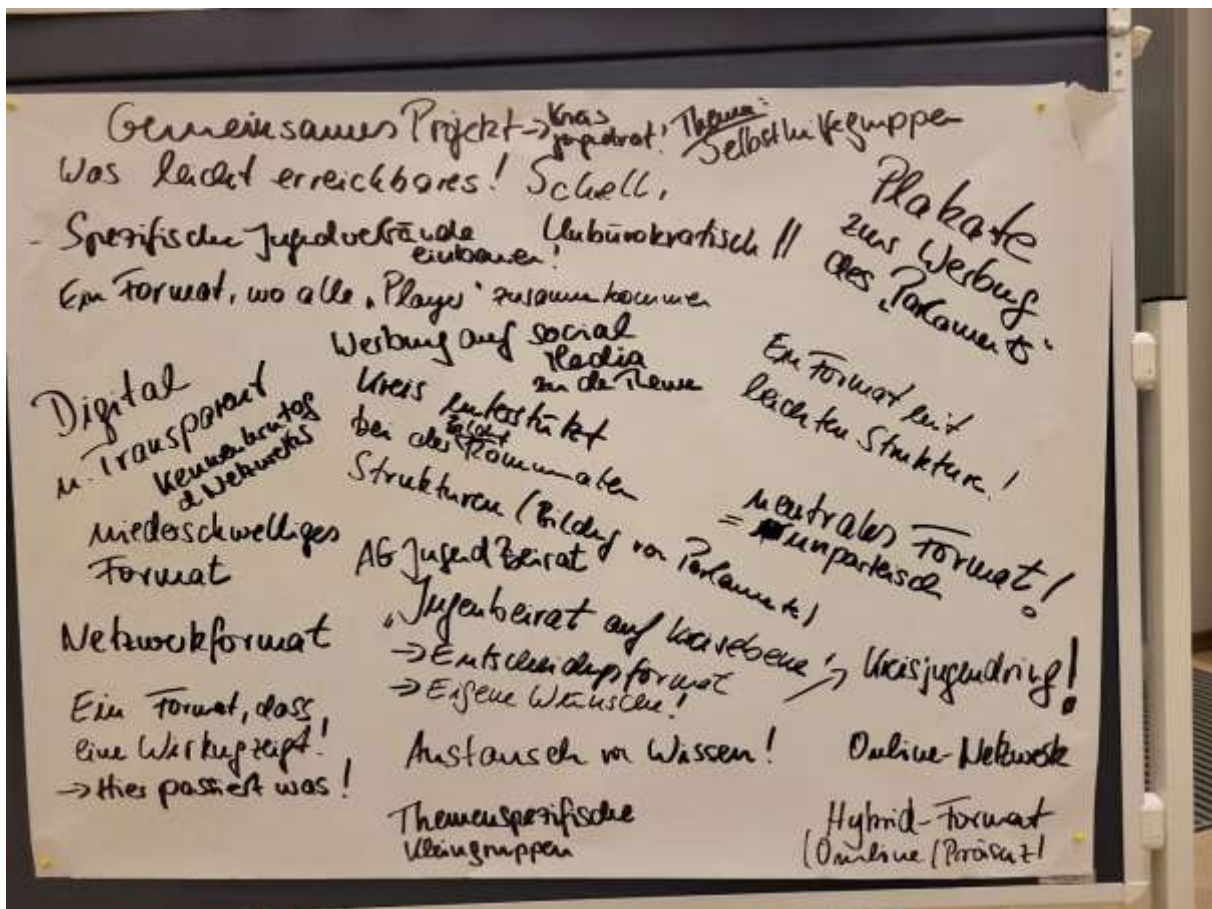 Gemeinsames Projekt → Kreis
jugendrat! Thema:
Selbsthilfegruppen
Was leicht erreichbares! Schell,
Unbürokratisch!!
- Spezifische Jugendverbände
einbauen!
Ein Format, wo alle "Player" zusammenkommen
Plakate
zur Werbung
des "Parlaments"
Werbung auf social
Media
zu de Theme
Digital
u. Transparent
Kennenlerntag
d Netzwerks
Kreis unterstützt
bei der Kommunalen
Strukturen (Bildung von Parlamente)
Ein Format mit
leichten Strukturen!
niederschwelliges
Format
AG Jugend Beirat
neutrales Format!
= unparteiisch
Netzwerkformat
"Jugenbeirat auf Kreisebene" → Kreisjugendring!
→ Entscheidungsformat
→ Eigene Wünsche!
Ein Format, dass
eine Wirkung zeigt!
→ Hier passiert was!
Austausch von Wissen!
Online-Netzwerk
Themenspezifische
Kleingruppen
Hybrid-Format
(Online/Präsenz)